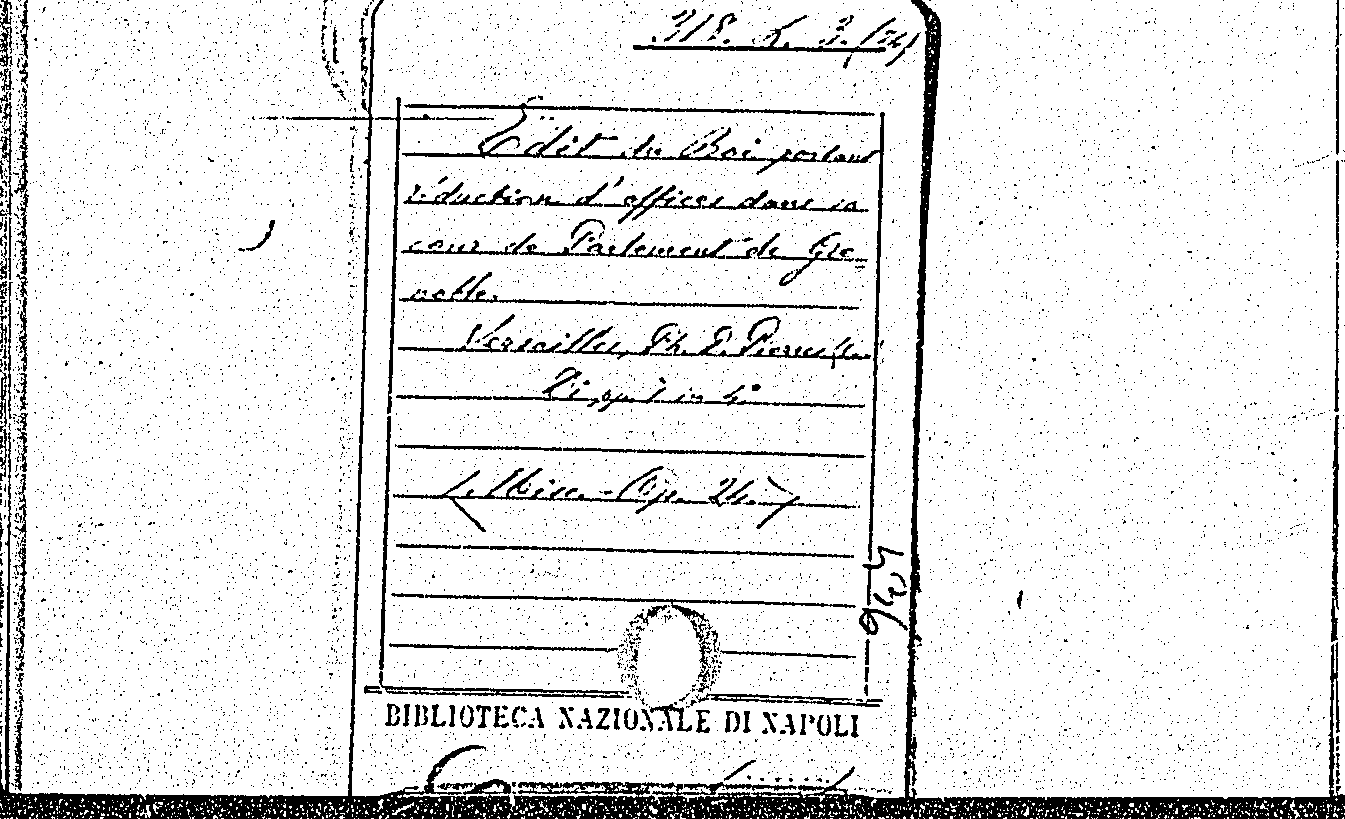 318. K. 3./24)
Edit du Roi portant
réduction d'offices dans sa
cour de Parlement de Gre=
noble.
Versailles, Ph. D. Pierres
in 4º
(Misc. - Op. 24.)
BIBLIOTECA NAZIONALE DI NAPOLI